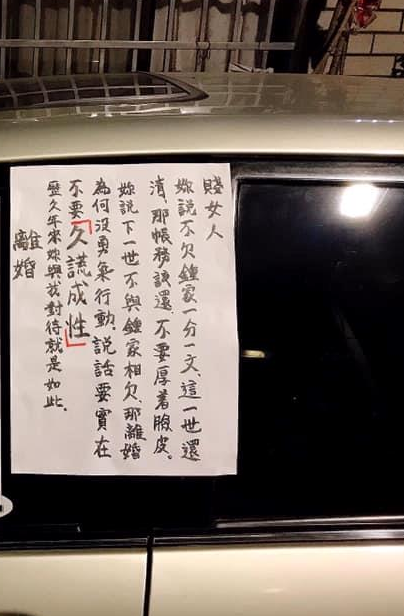 賤女人
妳說不欠鍾家一分一文、這一世還
清、那帳務該還、不要厚着臉皮。
妳說下一世不與鍾家相欠、那離婚
為何沒勇氣行動、說話要實在
不要「久謊成性」
歷久年來妳與我對待就是如此.
離婚